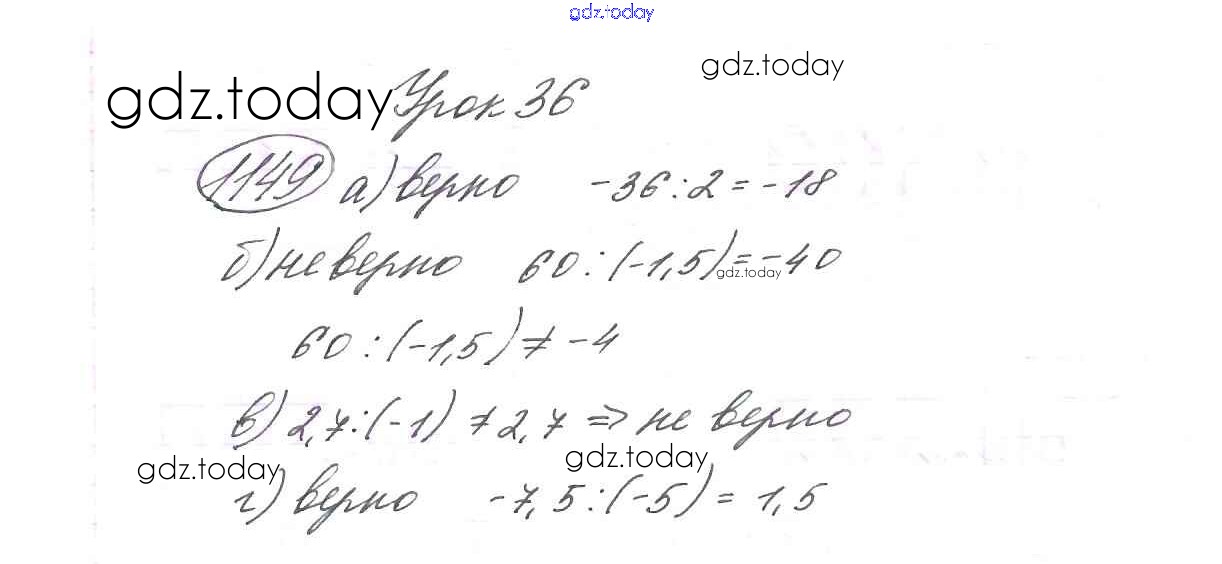 gdz.today
gdz.today
gdz.today Урок 36
1149 а) верно -36:2=-18
б) не верно 60:(-1,5)=-40
gdz.today
60:(-1,5)≠-4
в) 2,7:(-1)≠2,7 => не верно
gdz.today gdz.today
г) верно -7,5:(-5)=1,5